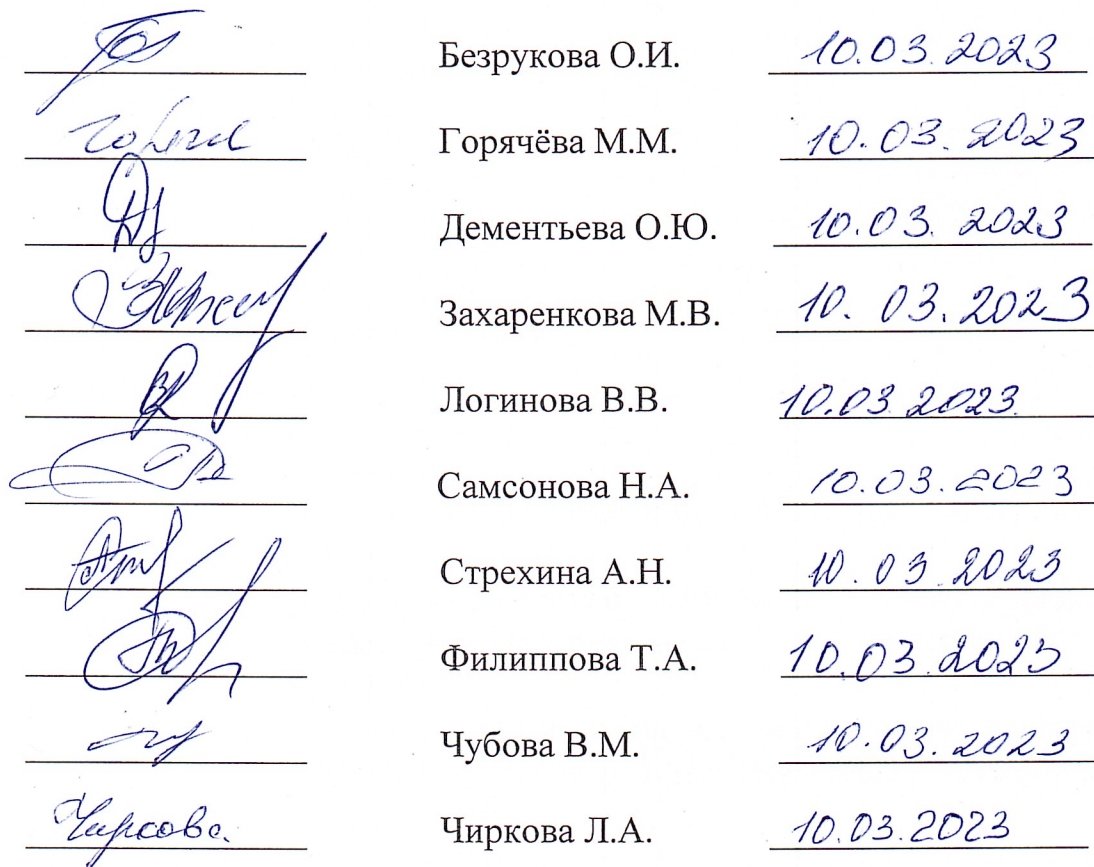 Безрукова О.И. 10.03.2023
Горячёва М.М. 10.03.2023
Дементьева О.Ю. 10.03.2023
Захаренкова М.В. 10.03.2023
Логинова В.В. 10.03.2023
Самсонова Н.А. 10.03.2023
Стрехина А.Н. 10.03.2023
Филиппова Т.А. 10.03.2023
Чубова В.М. 10.03.2023
Чиркова Л.А. 10.03.2023